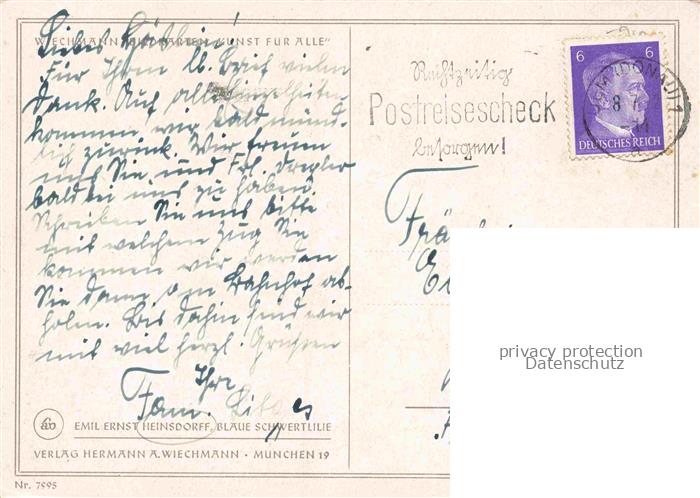 WIECHMANN-BILDKARTEN „KUNST FÜR ALLE"
Liebes
Für Ihren lb. Brief vielen
Dank. Auf alle Einzelheiten
kommen wir bald münd-
lich zurück. Wir freuen
uns Sie und Frl.
bald bei uns zu haben.
Schreiben Sie uns bitte
mit welchem Zug Sie
kommen wir werden
Sie dann am Bahnhof ab-
holen. Bis dahin sind wir
mit viel herzl. Grüßen
Ihre
Fam.
EMIL ERNST HEINSDORFF, BLAUE SCHWERTLILIE
VERLAG HERMANN A. WIECHMANN · MÜNCHEN 19
Nr. 7995
Rechtzeitig
Postreisescheck
besorgen!
6 6
DEUTSCHES REICH
ULM (DONAU) 1
Fräulein
privacy protection
Datenschutz